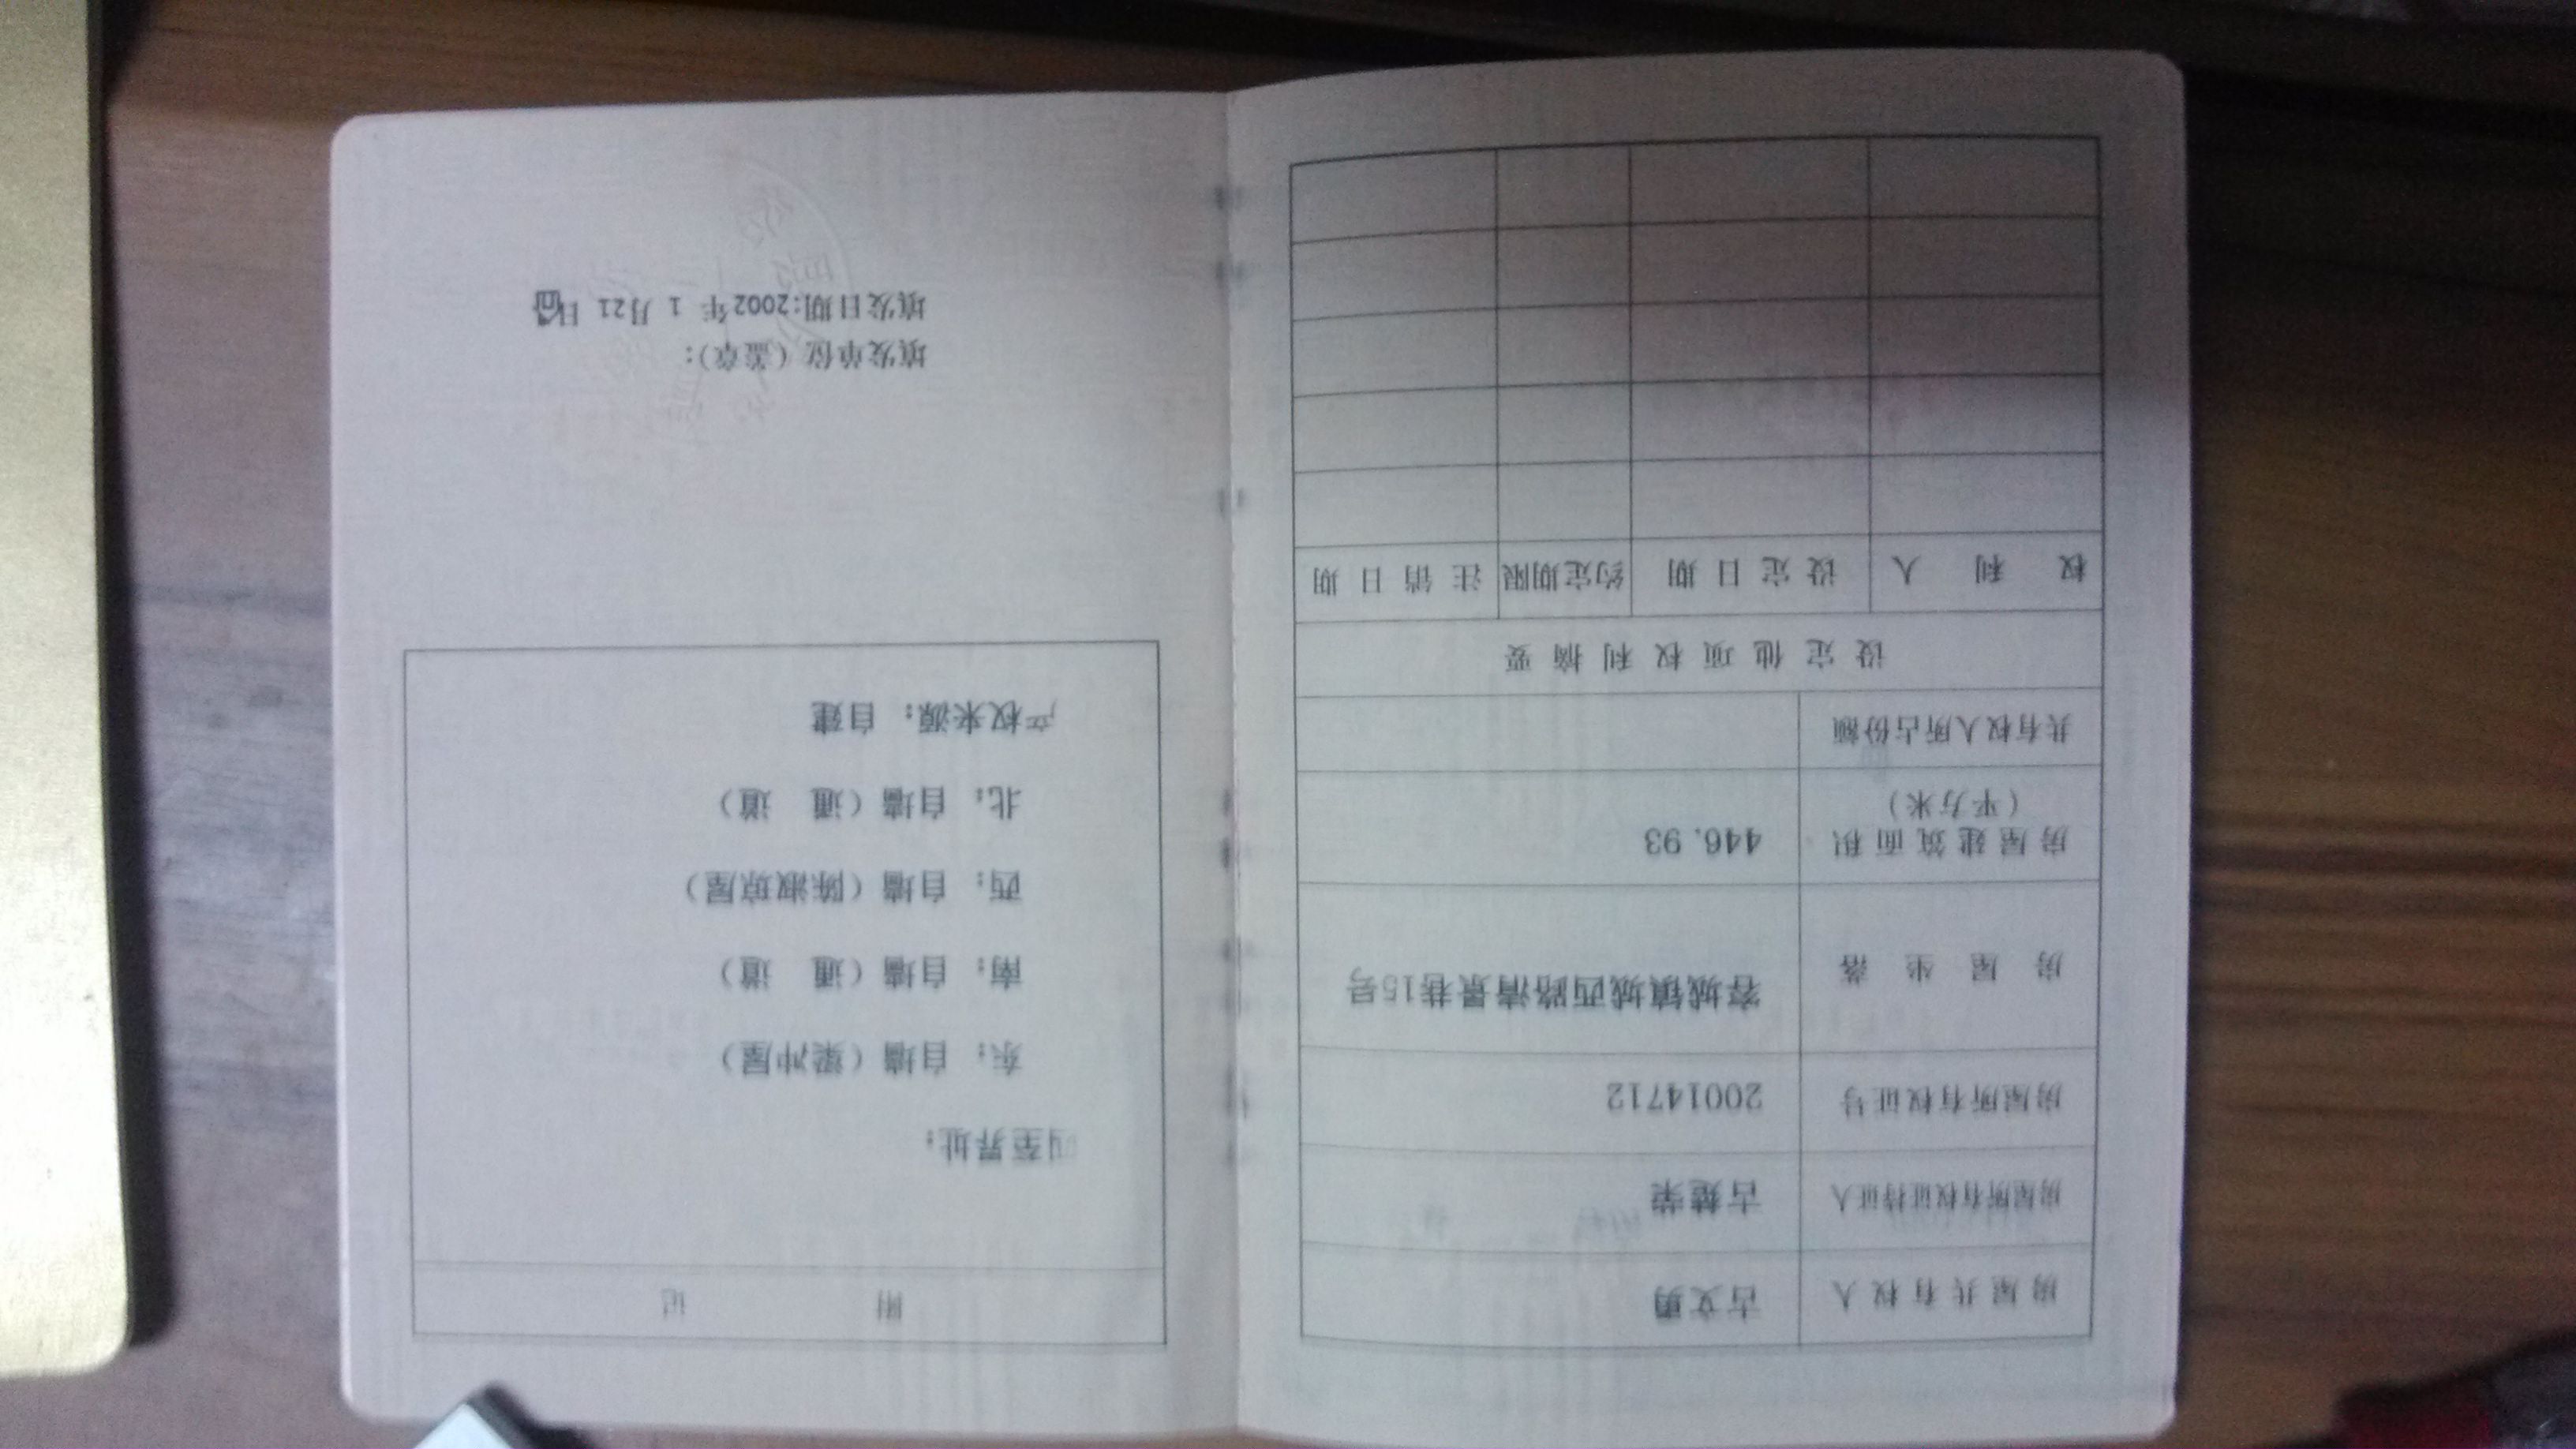 房屋共有权人 古文勇
房屋所有权证持证人 古楚荣
房屋所有权证号 20014712
房屋坐落 容城镇城西路清景巷15号
房屋建筑面积
（平方米） 446.93
共有权人所占份额
设定他项权利摘要
权利人 设定日期 约定期限 注销日期
附 记
四至界址：
东：自墙（梁冲屋）
南：自墙（通 道）
西：自墙（陈淑琼屋）
北：自墙（通 道）
产权来源：自建
填发单位（盖章）：
填发日期:2002年 1 月21 日